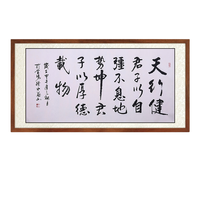 天行健
君子以自
彊不息地
勢坤君
子以厚德
載物